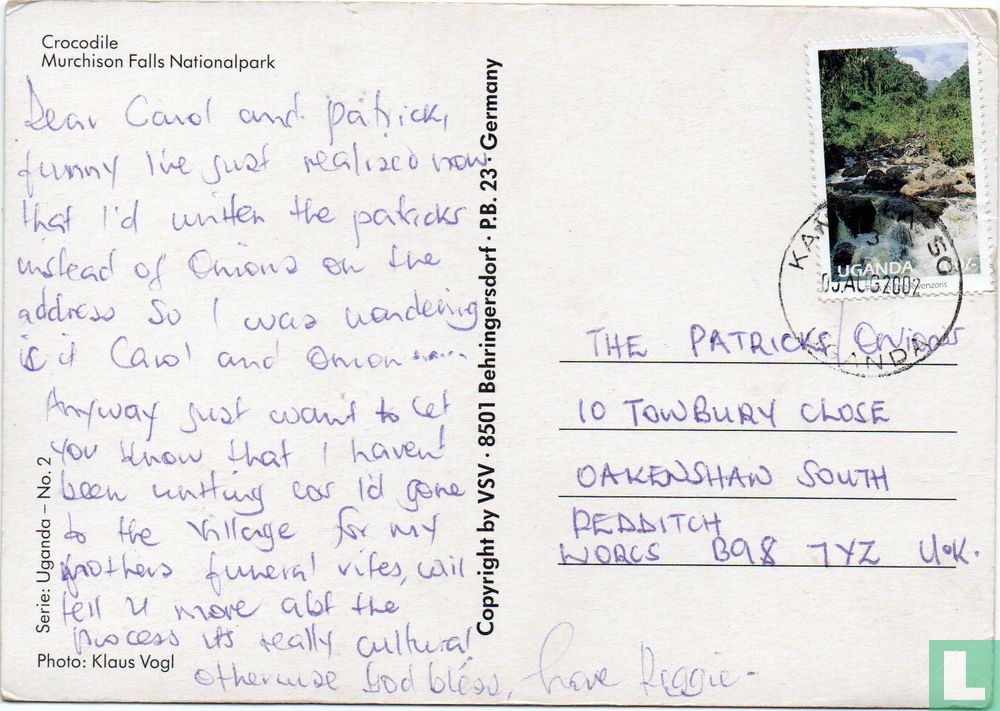 Crocodile
Murchison Falls Nationalpark
Dear Carol and patrick,
funny I've just realized now
that I'd written the patricks
instead of Onions on the
address So I was wondering
is it Carol and Onion .......
Anyway just want to let
you know that I haven't
been writting cos I'd gone
to the village for my
brothers funeral rites, will
tell u more abt the
process its really cultural
otherwise God bless, love Reggie -
Serie: Uganda – No. 2
Photo: Klaus Vogl
Copyright by VSV · 8501 Behringersdorf · P.B. 23 · Germany
UGANDA
05.AUG2002
UGANDA
THE PATRICKS/Onions
10 TOWBURY CLOSE
OAKENSHAW SOUTH
REDDITCH
WORCS B98 7YZ U.K.
L